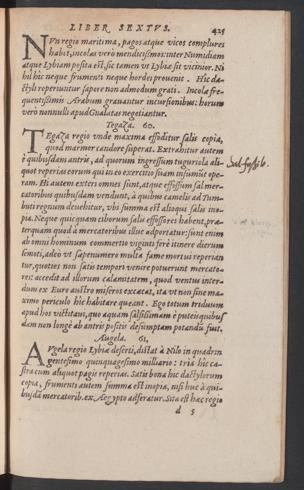 LIBER SEXTVS. 425
NVn regio maritima, pagos atque vicos complures
habet, incolas verò mendicissimos: inter Numidiam
atque Lybiam posita est, sic tamen vt Lybiæ sit vicinior. Ni
hil hic neque frumenti neque hordei prouenit. Hic da-
ctyli reperiuntur sapore non admodum grati. Incolæ fre-
quentissimis Arabum grauantur incursionibus: horum
verò nonnulli apud Gualatas negotiantur.
Tegaza. 60.
TEgaza regio vnde maxima effoditur salis copia,
quod marmor candore superat. Extrahitur autem
è quibusdam antris, ad quorum ingressum tuguriola ali-
quot reperias eorum qui in eo exercitio suam insumūt ope-
ram. Hi autem exteri omnes sunt, atque effossum sal mer-
catoribus quibusdam vendunt, à quibus camelis ad Tum-
buti regnum deuehitur, vbi summa est alioqui salis ino-
pia. Neque quicquam ciborum salis effossores habent, præ-
terquam quod à mercatoribus illuc adportatur: sunt enim
ab omni hominum commertio viginti ferè itinere dierum
semoti, adeò vt sæpenumero multa fame mortui reperian
tur, quoties non satis tempori venire potuerunt mercato-
res: accedit ad illorum calamitatem, quod ventus inter-
dum ex Euro austro miseros excæcat, ita vt non sine ma-
ximo periculo hîc habitare queant. Ego totum triduum
apud hos victitaui, quo aquam salsissimam è puteis quibus-
dam non longè ab antris positis desumptam potandū fuit.
Augela. 61.
AVgela regio Lybiæ deserti, distat à Nilo in quadrin
gentesimo quinquagesimo milliario: tria hîc ca-
stra cum aliquot pagis reperias. Satis bona hîc dactylorum
copia, frumenti autem summa est inopia, nisi huc à qui-
busdā mercatorib. ex Aegypto adferatur. Sita est hæc regio
d 5
Sal fossile.